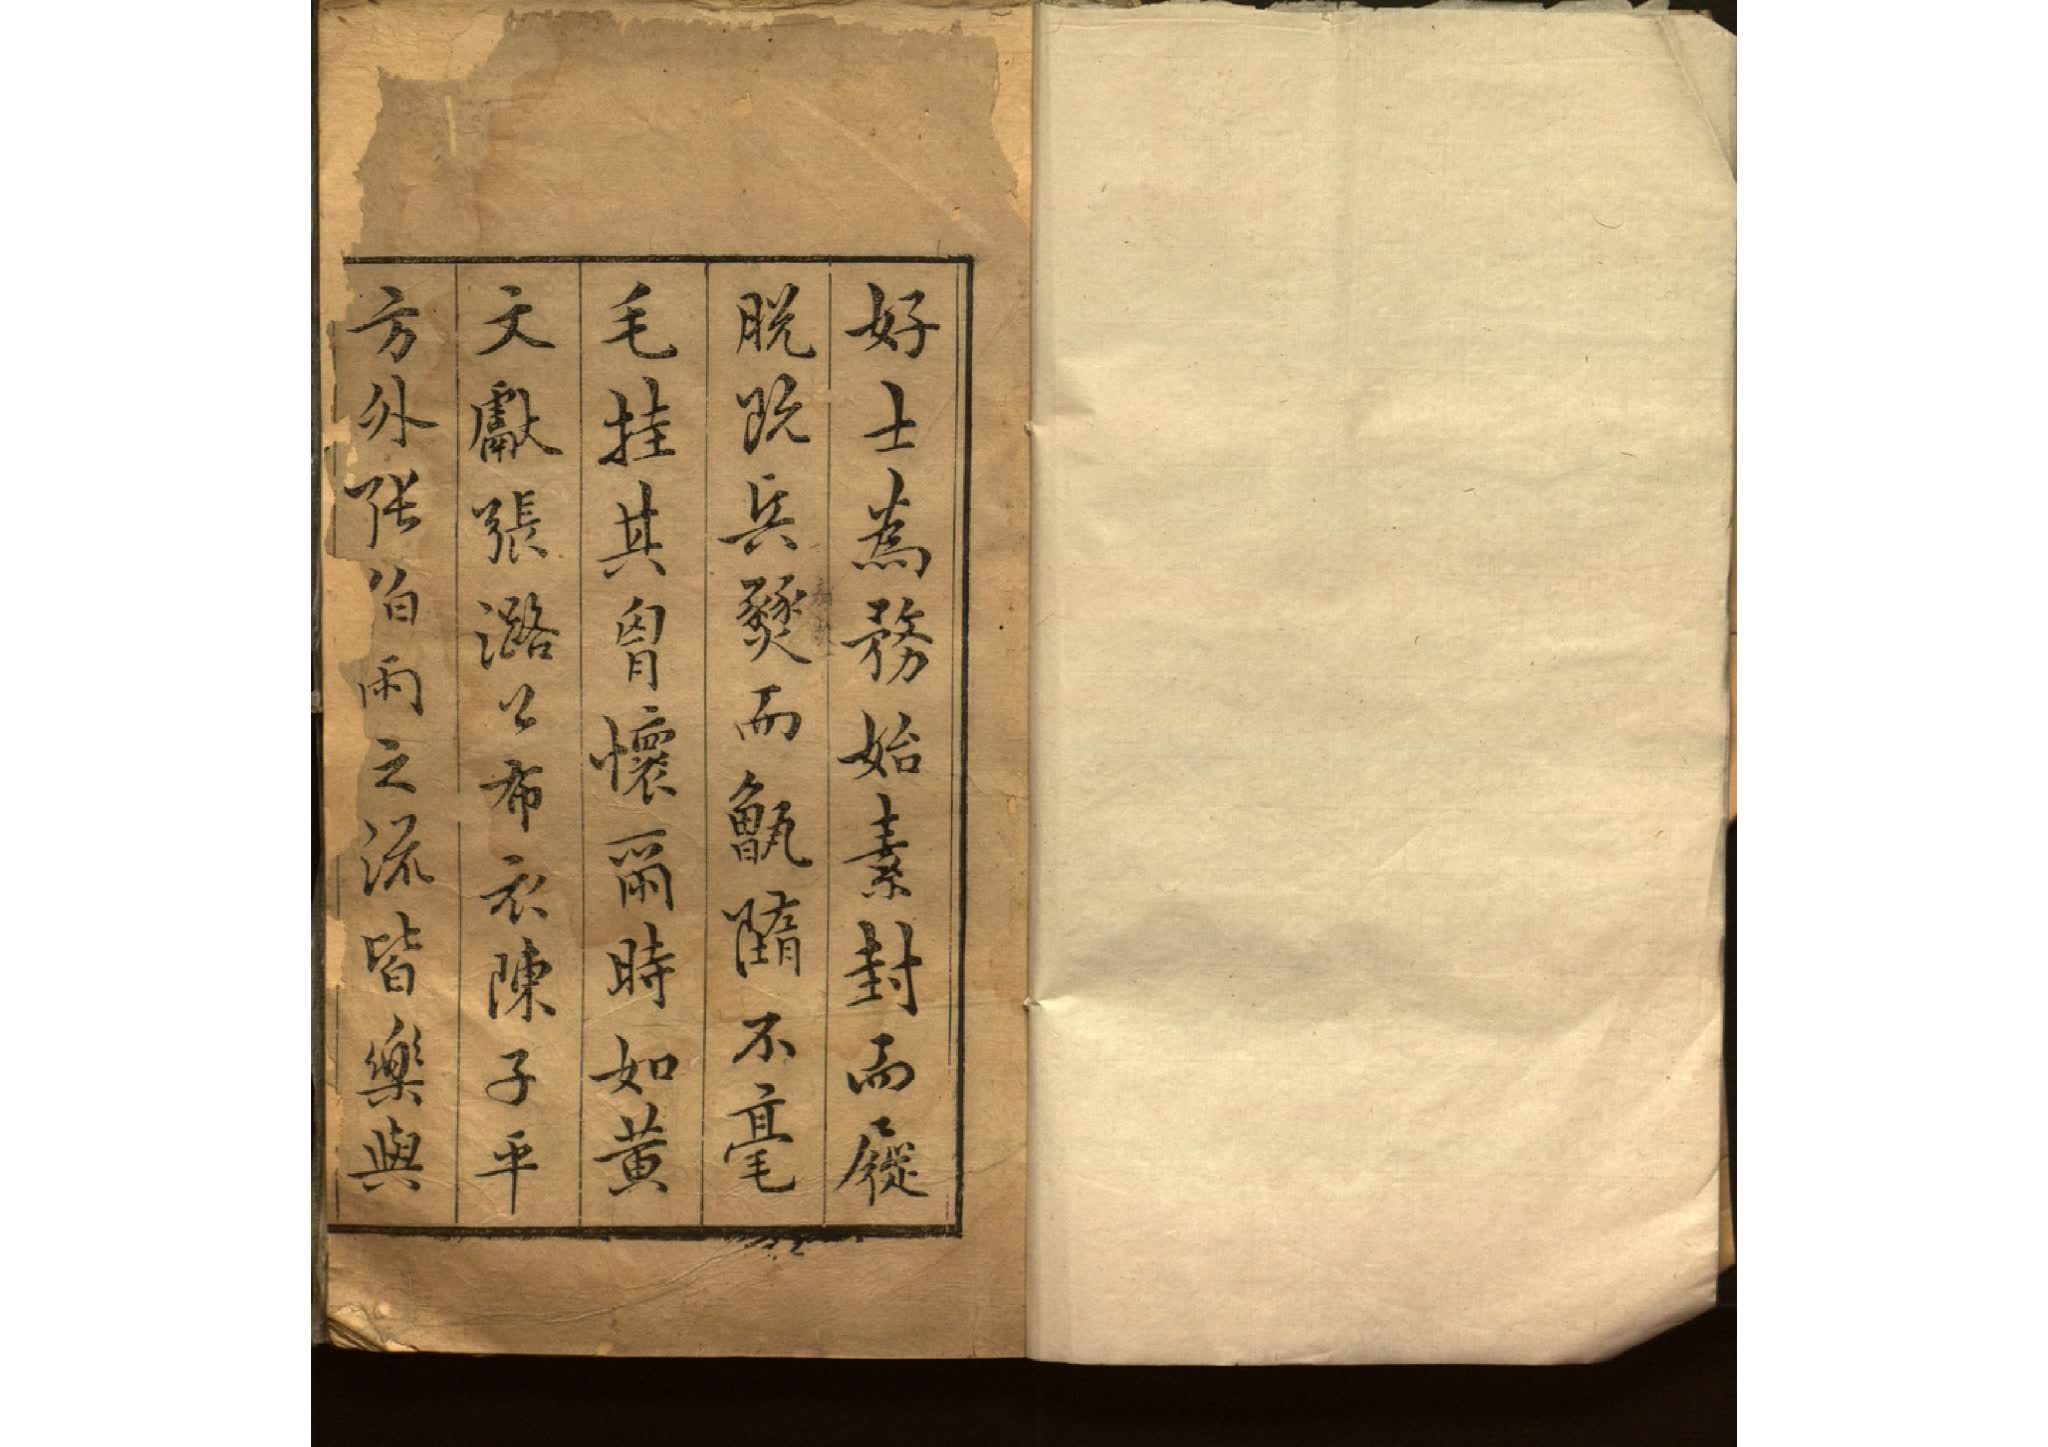 好士爲務始素封而屣
脱既兵燹而甑隋不毫
毛挂其胷懷爾時如黄
文獻張潞公布衣陳子平
方外張伯雨之流皆樂與